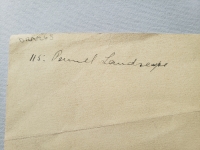 115. Pennel Landscape